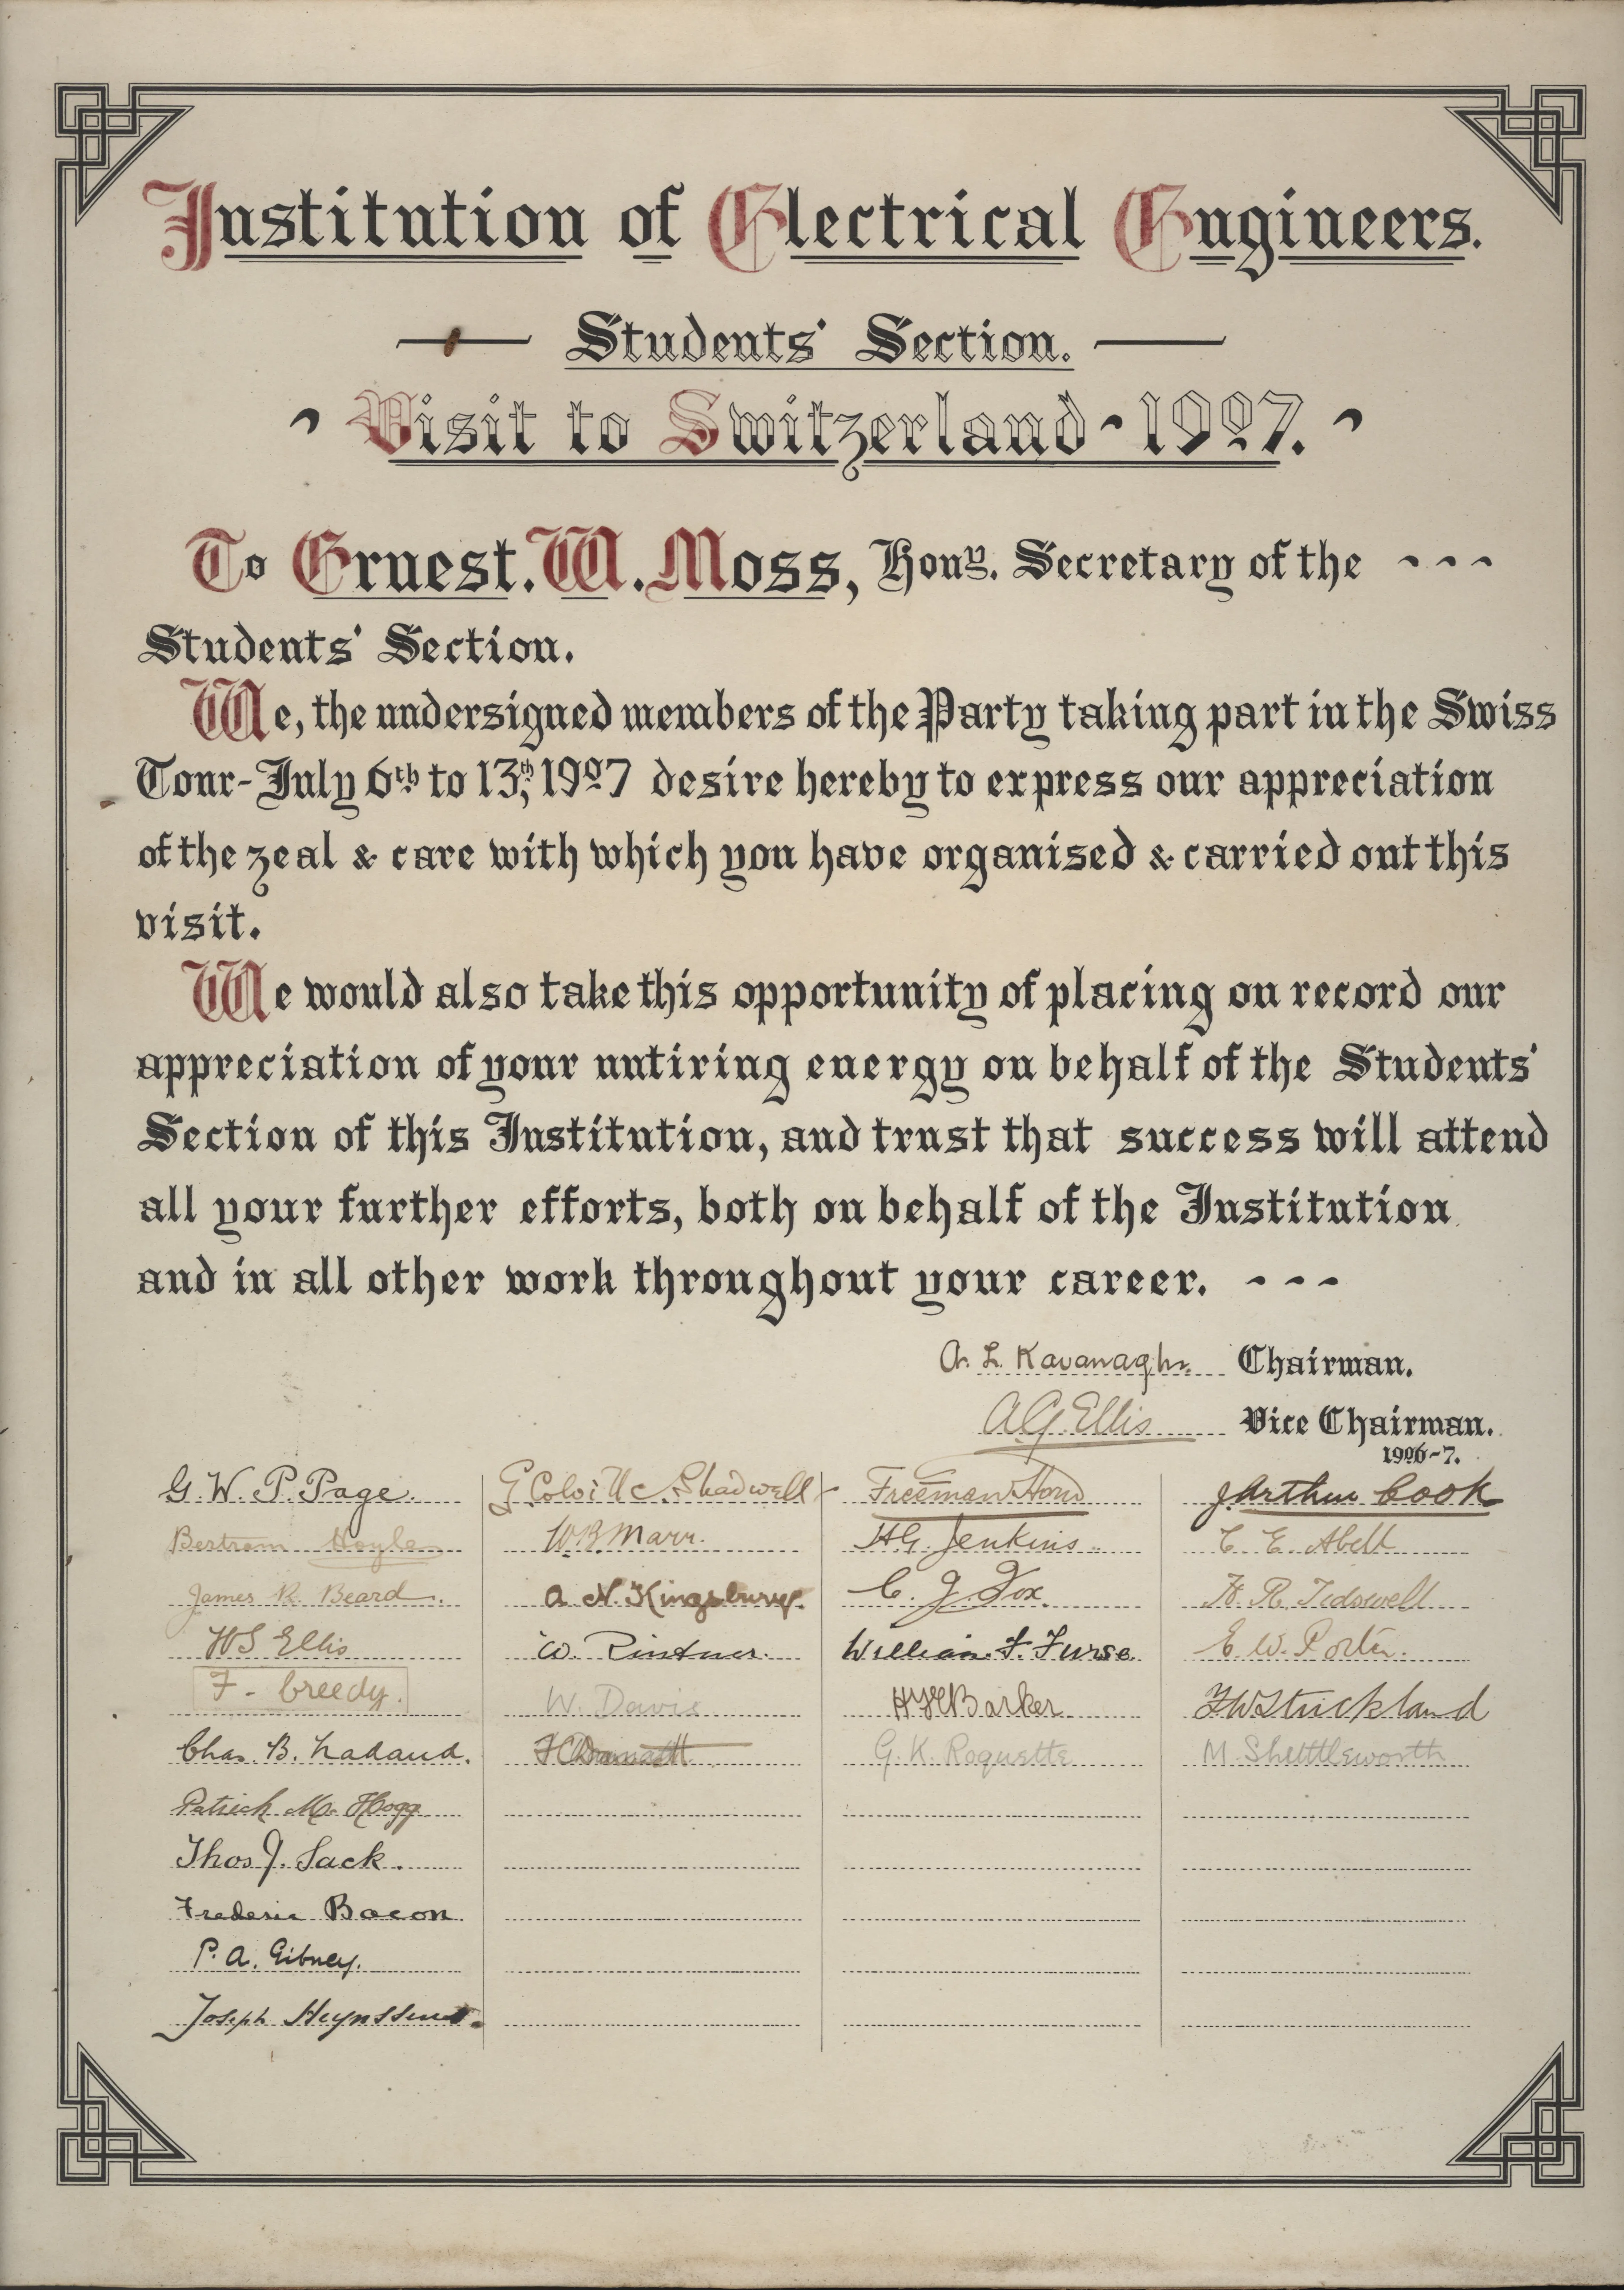 Institution of Electrical Engineers.
Students' Section.
Visit to Switzerland - 1907.
To Ernest. W. Moss, Hony. Secretary of the - - -
Students' Section.
We, the undersigned members of the Party taking part in the Swiss
Tour - July 6th to 13th, 1907 desire hereby to express our appreciation
of the zeal & care with which you have organised & carried out this
visit.
We would also take this opportunity of placing on record our
appreciation of your untiring energy on behalf of the Students'
Section of this Institution, and trust that success will attend
all your further efforts, both on behalf of the Institution
and in all other work throughout your career. - - -
A. L. Kavanagh. Chairman.
A G Ellis Vice Chairman.
1906-7.
G. W. P. Page.
Bertram Hoyle
James R. Beard.
W S Ellis
F. Creedy.
Chas. B.
Patrick Mc. Hogg
Thos J. Sack.
Frederic Bacon
P. A. Gibney.
Joseph
G. Colville Shadwell
W.B. Marr.
A N. Kingsbury.
W.
W. Davis
Freeman Horn
H.G. Jenkins.
C. J. Fox.
William F. Furse.
Barker
G. K. Roquette
J. Arthur Cook
C. E. Abell
H. R. Tidswell
E. W. Porter.
F W Strickland
M. Shuttleworth